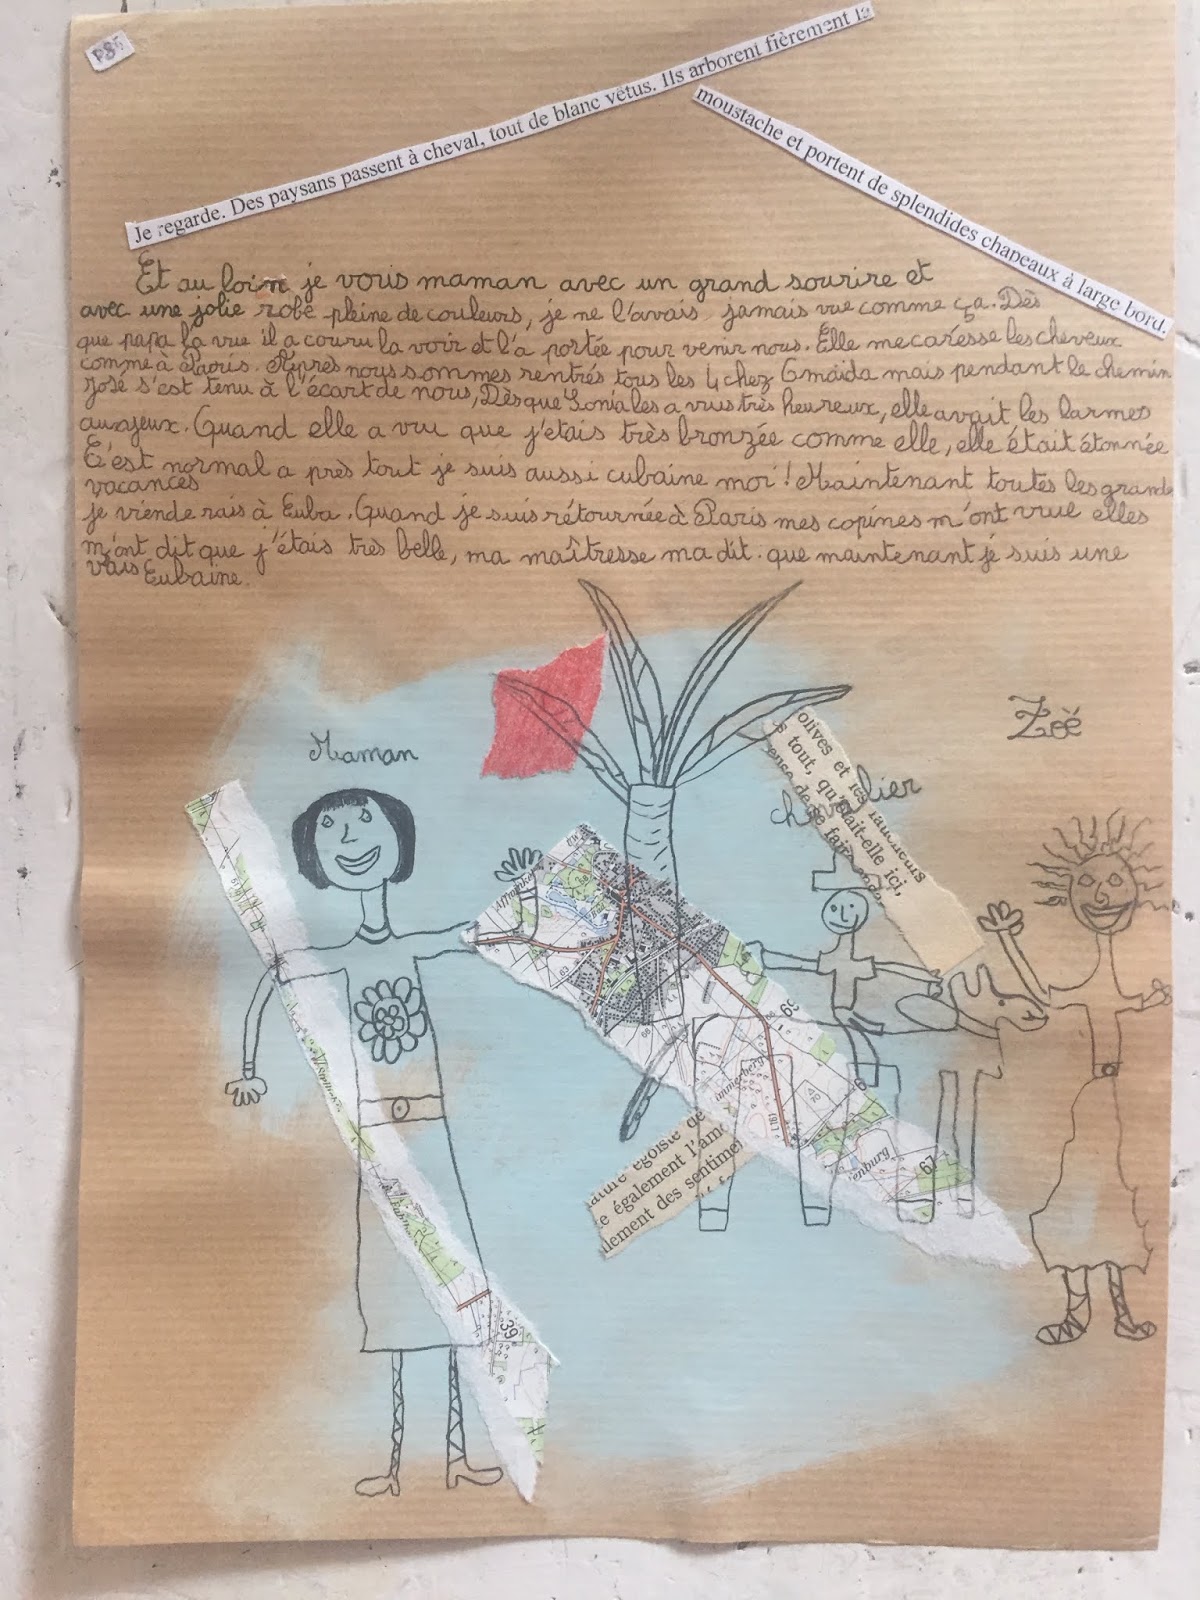 P85
Je regarde. Des paysans passent à cheval, tout de blanc vêtus. Ils arborent fièrement la
moustache et portent de splendides chapeaux à large bord.
Et au loin je vois maman avec un grand sourire et
avec une jolie robe pleine de couleurs, je ne l'avais jamais vue comme ça. Dès
que papa la vue il a couru la voir et l'a portée pour venir nous. Elle me caresse les cheveux
comme à Paris. Après nous sommes rentrés tous les 4 chez Omaïda mais pendant le chemin
José s'est tenu à l'écart de nous, Dès que Sonia les a vus très heureux, elle avait les larmes
aux yeux. Quand elle a vu que j'étais très bronzée comme elle, elle était étonnée
C'est normal a près tout je suis aussi cubaine moi! Maintenant toutes les grande
vacances
je viende rais à Cuba. Quand je suis rétournée à Paris mes copines m'ont vue elles
m'ont dit que j'étais très belle, ma maîtresse ma dit que maintenant je suis une
vrais Cubaine.
Maman
Zoë
chevalier
olives et les
s tout, qu'était-elle ici,
ence de se fai
égoïste de
e également l'am
lement des sentimen
immerberg
enburg
63
69
67
39